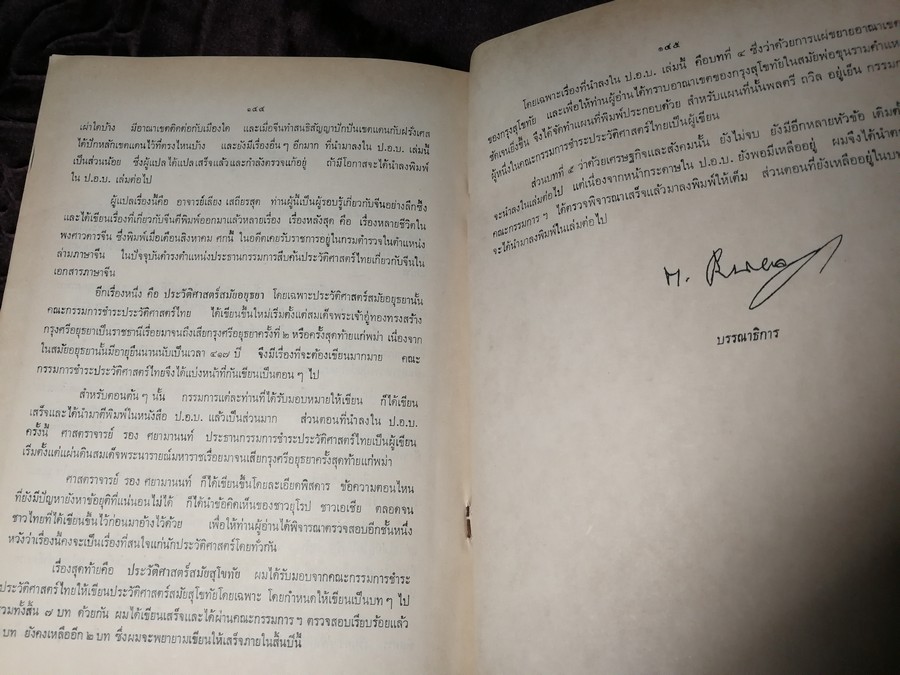 ๑๔๔
เผ่าใดบ้าง มีอาณาเขตติดต่อกับเมืองใด และเมื่อจีนทำสนธิสัญญาปักปันเขตแดนกับฝรั่งเศส
ได้ปักหลักเขตแดนไว้ที่ตรงไหนบ้าง และยังมีเรื่องอื่น ๆ อีกมาก ที่นำมาลงใน ป.อ.บ. เล่มนี้
เป็นส่วนน้อย ซึ่งผู้แปลได้แปลเสร็จแล้วและกำลังตรวจแก้อยู่ ถ้ามีโอกาสจะได้นำลงพิมพ์
ใน ป.อ.บ. เล่มต่อไป
ผู้แปลเรื่องนี้คือ อาจารย์เลียง เสถียรสุต ท่านผู้นี้เป็นผู้รอบรู้เกี่ยวกับจีนอย่างลึกซึ้ง
และได้เขียนเรื่องที่เกี่ยวกับจีนตีพิมพ์ออกมาแล้วหลายเรื่อง เรื่องหลังสุด คือ เรื่องหลายชีวิตใน
พงศาวดารจีน ซึ่งพิมพ์เมื่อเดือนสิงหาคม ศกนี้ ในอดีตเคยรับราชการอยู่ในกรมตำรวจในตำแหน่ง
ล่ามภาษาจีน ในปัจจุบันดำรงตำแหน่งประธานกรรมการสืบค้นประวัติศาสตร์ไทยเกี่ยวกับจีนใน
เอกสารภาษาจีน
อีกเรื่องหนึ่ง คือ ประวัติศาสตร์สมัยอยุธยา โดยเฉพาะประวัติศาสตร์สมัยอยุธยานั้น
คณะกรรมการชำระประวัติศาสตร์ไทย ได้เขียนขึ้นใหม่เริ่มตั้งแต่สมเด็จพระเจ้าอู่ทองทรงสร้าง
กรุงศรีอยุธยาเป็นราชธานีเรื่อยมาจนถึงเสียกรุงศรีอยุธยาครั้งที่ ๒ หรือครั้งสุดท้ายแก่พม่า เนื่องจาก
ในสมัยอยุธยานั้นมีอายุยืนนานนับเป็นเวลา ๔๑๗ ปี จึงมีเรื่องที่จะต้องเขียนมากมาย คณะ
กรรมการชำระประวัติศาสตร์ไทยจึงได้แบ่งหน้าที่กันเขียนเป็นตอน ๆ ไป
สำหรับตอนต้น ๆ นั้น กรรมการแต่ละท่านที่ได้รับมอบหมายให้เขียน ก็ได้เขียน
เสร็จและได้นำมาตีพิมพ์ในหนังสือ ป.อ.บ. แล้วเป็นส่วนมาก ส่วนตอนที่นำลงใน ป.อ.บ.
ครั้งนี้ ศาสตราจารย์ รอง ศยามานนท์ ประธานกรรมการชำระประวัติศาสตร์ไทยเป็นผู้เขียน
เริ่มตั้งแต่แผ่นดินสมเด็จพระนารายณ์มหาราชเรื่อยมาจนเสียกรุงศรีอยุธยาครั้งสุดท้ายแก่พม่า
ศาสตราจารย์ รอง ศยามานนท์ ก็ได้เขียนขึ้นโดยละเอียดพิสดาร ข้อความตอนไหน
ที่ยังมีปัญหายังหาข้อยุติที่แน่นอนไม่ได้ ก็ได้นำข้อคิดเห็นของชาวยุโรป ชาวเอเชีย ตลอดจน
ชาวไทยที่ได้เขียนขึ้นไว้ก่อนมาอ้างไว้ด้วย เพื่อให้ท่านผู้อ่านได้พิจารณาตรวจสอบอีกชั้นหนึ่ง
หวังว่าเรื่องนี้คงจะเป็นเรื่องที่สนใจแก่นักประวัติศาสตร์โดยทั่วกัน
เรื่องสุดท้ายคือ ประวัติศาสตร์สมัยสุโขทัย ผมได้รับมอบจากคณะกรรมการชำระ
ประวัติศาสตร์ไทยให้เขียนประวัติศาสตร์สมัยสุโขทัยโดยเฉพาะ โดยกำหนดให้เขียนเป็นบท ๆ ไป
รวมทั้งสิ้น ๗ บท ด้วยกัน ผมได้เขียนเสร็จและได้ผ่านคณะกรรมการ ฯ ตรวจสอบเรียบร้อยแล้ว
บท ยังคงเหลืออีก ๒ บท ซึ่งผมจะพยายามเขียนให้เสร็จภายในสิ้นปีนี้
๑๔๕
โดยเฉพาะเรื่องที่นำลงใน ป.อ.บ. เล่มนี้ คือบทที่ ๔ ซึ่งว่าด้วยการแผ่ขยายอาณาเขต
ของกรุงสุโขทัย และเพื่อให้ท่านผู้อ่านได้ทราบอาณาเขตของกรุงสุโขทัยในสมัยพ่อขุนรามคำแห
ชัดเจนยิ่งขึ้น จึงได้จัดทำแผนที่พิมพ์ประกอบด้วย สำหรับแผนที่นั้นพลตรี ถวิล อยู่เย็น กรรมก
ผู้หนึ่งในคณะกรรมการชำระประวัติศาสตร์ไทยเป็นผู้เขียน
ส่วนบทที่ ๕ ว่าด้วยเศรษฐกิจและสังคมนั้น ยังไม่จบ ยังมีอีกหลายหัวข้อ เดิมตั้
จะนำลงในเล่มต่อไป แต่เนื่องจากหน้ากระดาษใน ป.อ.บ. ยังพอมีเหลืออยู่ ผมจึงได้นำต
คณะกรรมการ ฯ ได้ตรวจพิจารณาเสร็จแล้วมาลงพิมพ์ให้เต็ม ส่วนตอนที่ยังเหลืออยู่ในบท
จะได้นำมาลงพิมพ์ในเล่มต่อไป
บรรณาธิการ